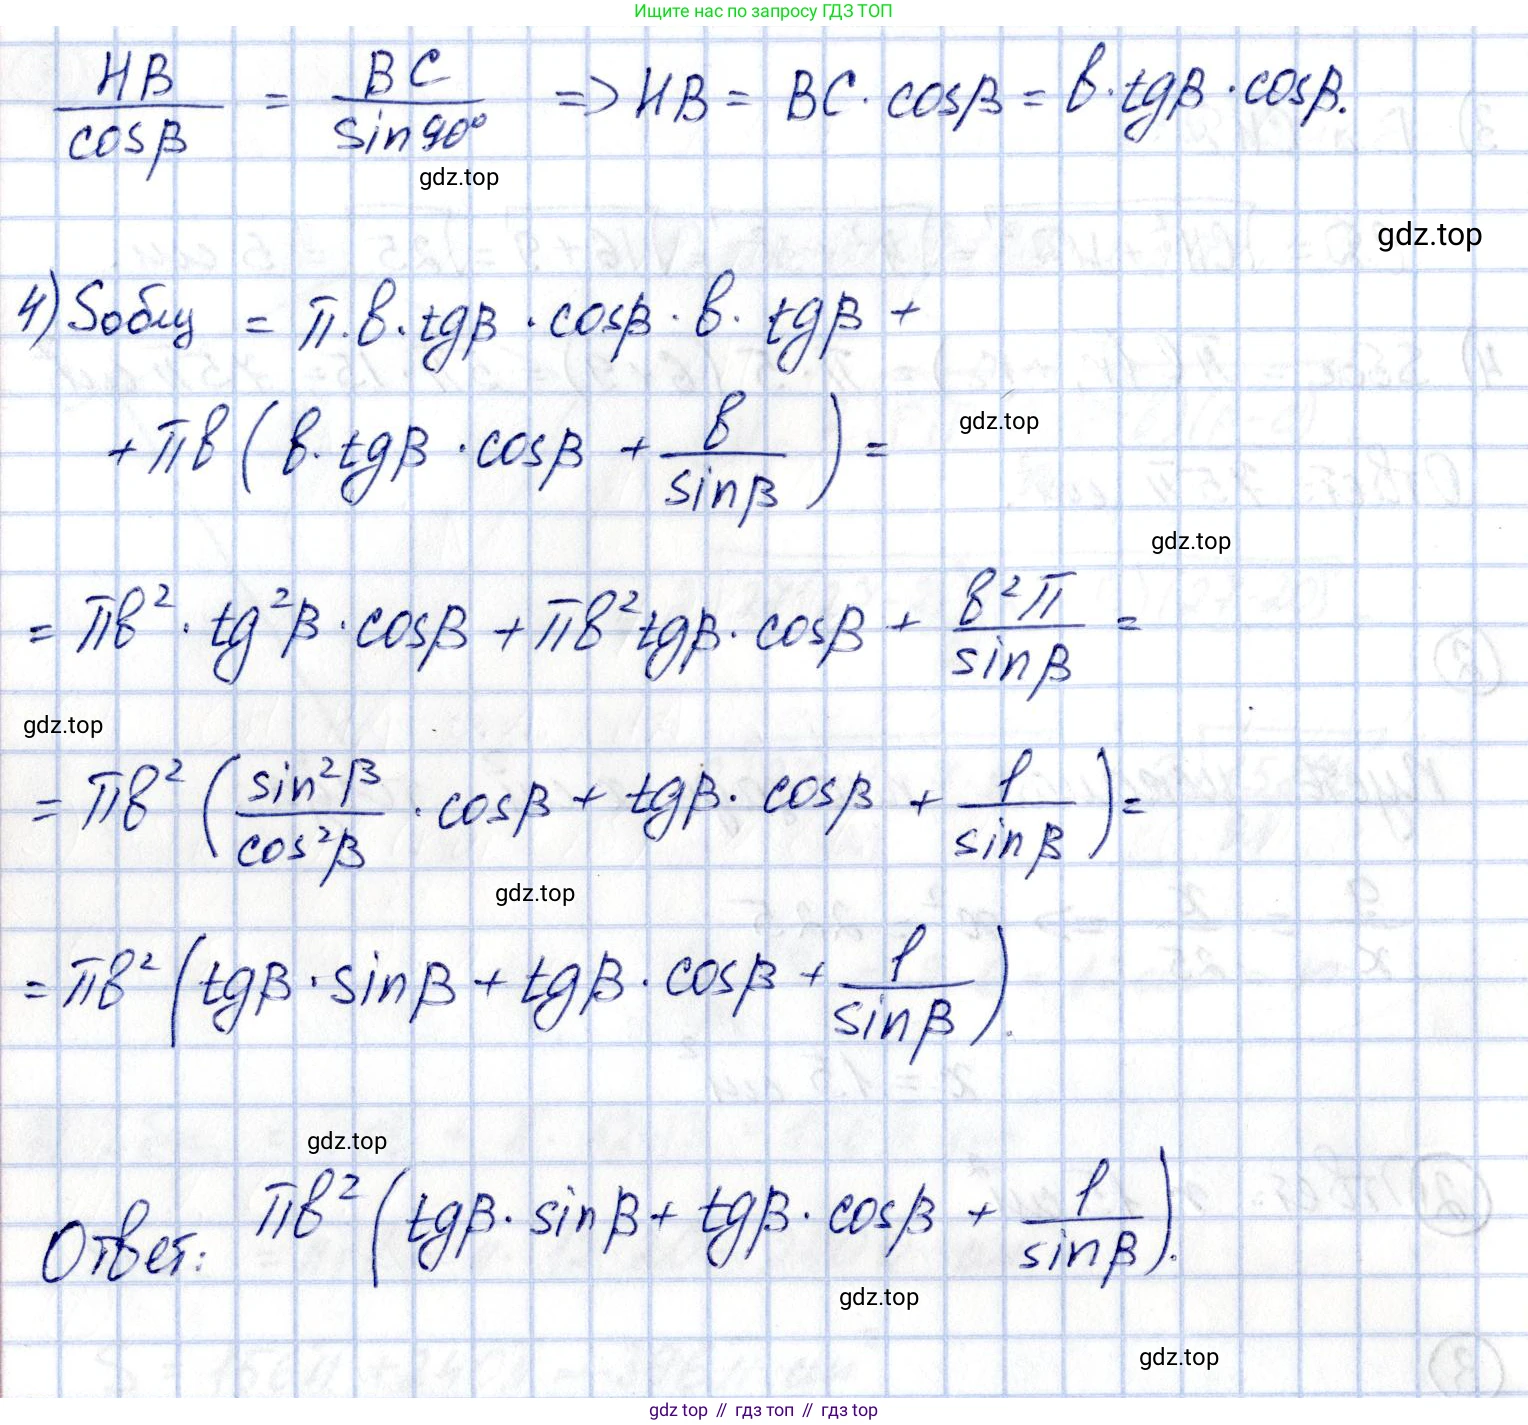 Ищите нас по запросу ГДЗ ТОП
HB/cosβ = BC/sin90° => HB = BC · cosβ = в · tgβ · cosβ.
gdz.top
gdz.top
4) Sобщ = π · в · tgβ · cosβ · в · tgβ +
+ πв (в · tgβ · cosβ + в/sinβ) =
gdz.top
gdz.top
= πв² · tg²β · cosβ + πв² tgβ · cosβ + в²π/sinβ =
gdz.top
= πв² (sin²β/cos²β · cosβ + tgβ · cosβ + 1/sinβ) =
gdz.top
= πв² (tgβ · sinβ + tgβ · cosβ + 1/sinβ).
gdz.top
Ответ: πв² (tgβ · sinβ + tgβ · cosβ + 1/sinβ).
gdz.top
gdz.top
gdz top // гдз топ // gdz top